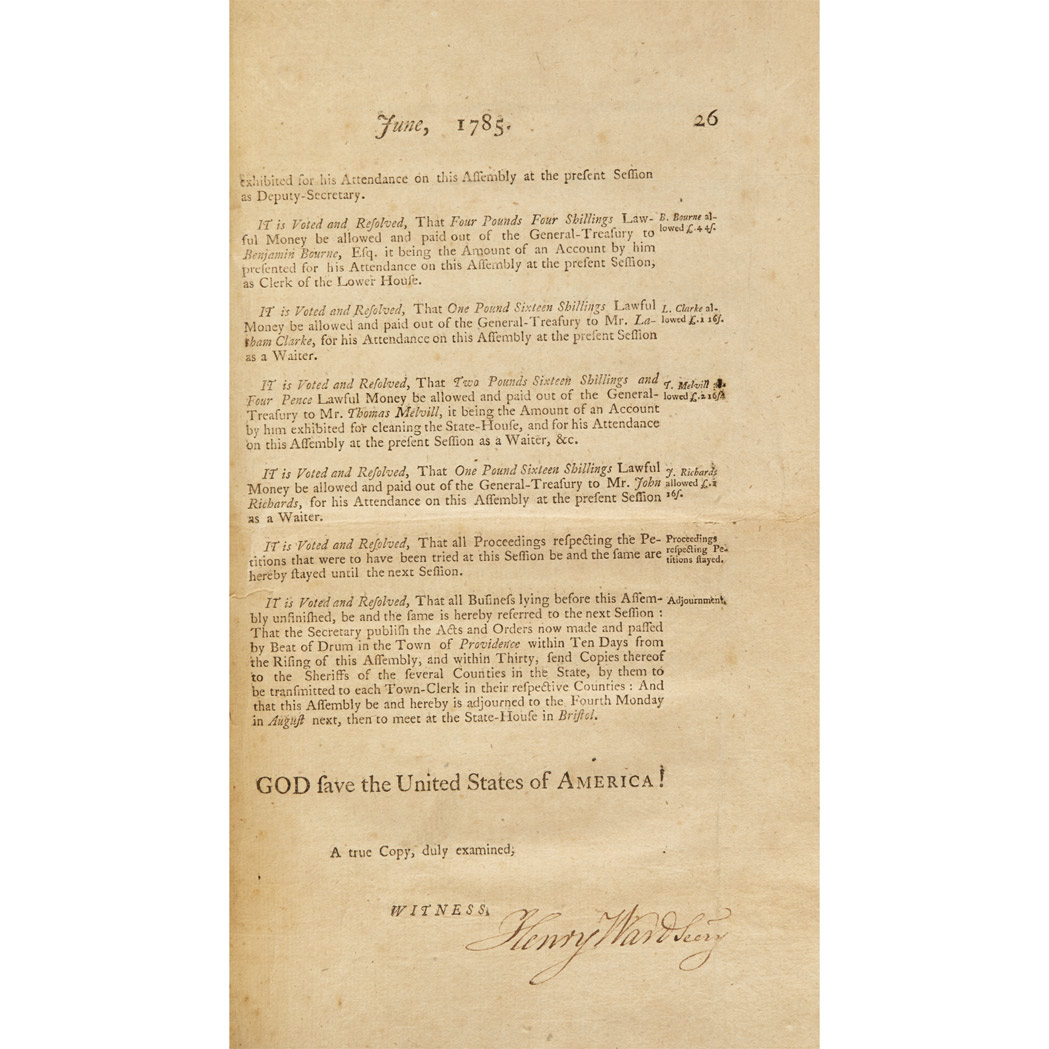 June, 1785.
26
exhibited for his Attendance on this Aſſembly at the preſent Seſſion
as Deputy-Secretary.
IT is Voted and Reſolved, That Four Pounds Four Shillings Law-
ful Money be allowed and paid out of the General-Treaſury to
Benjamin Bourne, Eſq. it being the Amount of an Account by him
preſented for his Attendance on this Aſſembly at the preſent Seſſion,
as Clerk of the Lower Houſe.
B. Bourne al-
lowed £.4 4ſ.
IT is Voted and Reſolved, That One Pound Sixteen Shillings Lawful
Money be allowed and paid out of the General-Treaſury to Mr. La-
tham Clarke, for his Attendance on this Aſſembly at the preſent Seſſion
as a Waiter.
L. Clarke al-
lowed £.1 16ſ.
IT is Voted and Reſolved, That Two Pounds Sixteen Shillings and
Four Pence Lawful Money be allowed and paid out of the General-
Treaſury to Mr. Thomas Melvill, it being the Amount of an Account
by him exhibited for cleaning the State-Houſe, and for his Attendance
on this Aſſembly at the preſent Seſſion as a Waiter, &c.
T. Melvill al-
lowed £.2 16ſ4
IT is Voted and Reſolved, That One Pound Sixteen Shillings Lawful
Money be allowed and paid out of the General-Treaſury to Mr. John
Richards, for his Attendance on this Aſſembly at the preſent Seſſion
as a Waiter.
J. Richards
allowed £.1
16ſ.
IT is Voted and Reſolved, That all Proceedings reſpecting the Pe-
titions that were to have been tried at this Seſſion be and the ſame are
hereby ſtayed until the next Seſſion.
Proceedings
reſpecting Pe-
titions ſtayed.
IT is Voted and Reſolved, That all Buſineſs lying before this Aſſem-
bly unfiniſhed, be and the ſame is hereby referred to the next Seſſion :
That the Secretary publiſh the Acts and Orders now made and paſſed
by Beat of Drum in the Town of Providence within Ten Days from
the Riſing of this Aſſembly, and within Thirty, ſend Copies thereof
to the Sheriffs of the ſeveral Counties in the State, by them to
be tranſmitted to each Town-Clerk in their reſpective Counties : And
that this Aſſembly be and hereby is adjourned to the Fourth Monday
in Auguſt next, then to meet at the State-Houſe in Briſtol.
Adjournment.
GOD ſave the United States of AMERICA!
A true Copy, duly examined;
WITNESS,
Henry Ward Secry